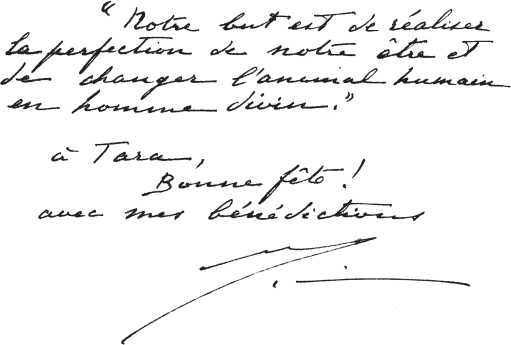 “Notre but est de réaliser
la perfection de notre être et
de changer l'animal humain
en homme divin.”
à Tara,
Bonne fête!
avec mes bénédictions